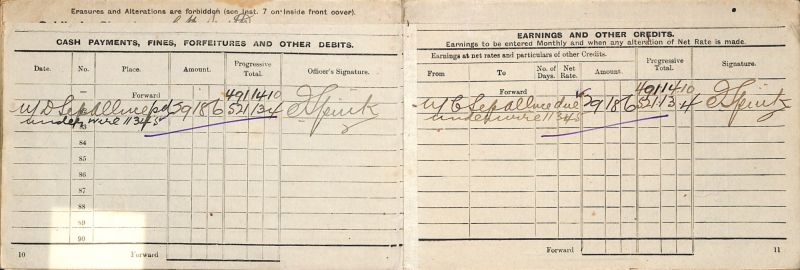 Erasures and Alterations are forbidden (see Inst. 7 on Inside front cover).
CASH PAYMENTS, FINES, FORFEITURES AND OTHER DEBITS.
Date. No. Place. Amount. Progressive Total. Officer's Signature.
Forward 491 14 10
W/D Sep allnce pd 29 18 6 521 13 4
under wire 11345
84
85
86
87
88
89
90
10 Forward
EARNINGS AND OTHER CREDITS.
Earnings to be entered Monthly and when any alteration of Net Rate is made.
Earnings at net rates and particulars of other Credits. Progressive Total. Signature.
From To No. of Days. Net Rate. Amount.
Forward 491 14 10
W/C Sep allnce due 29 18 6 521 13 4
under wire 11345
Forward 11